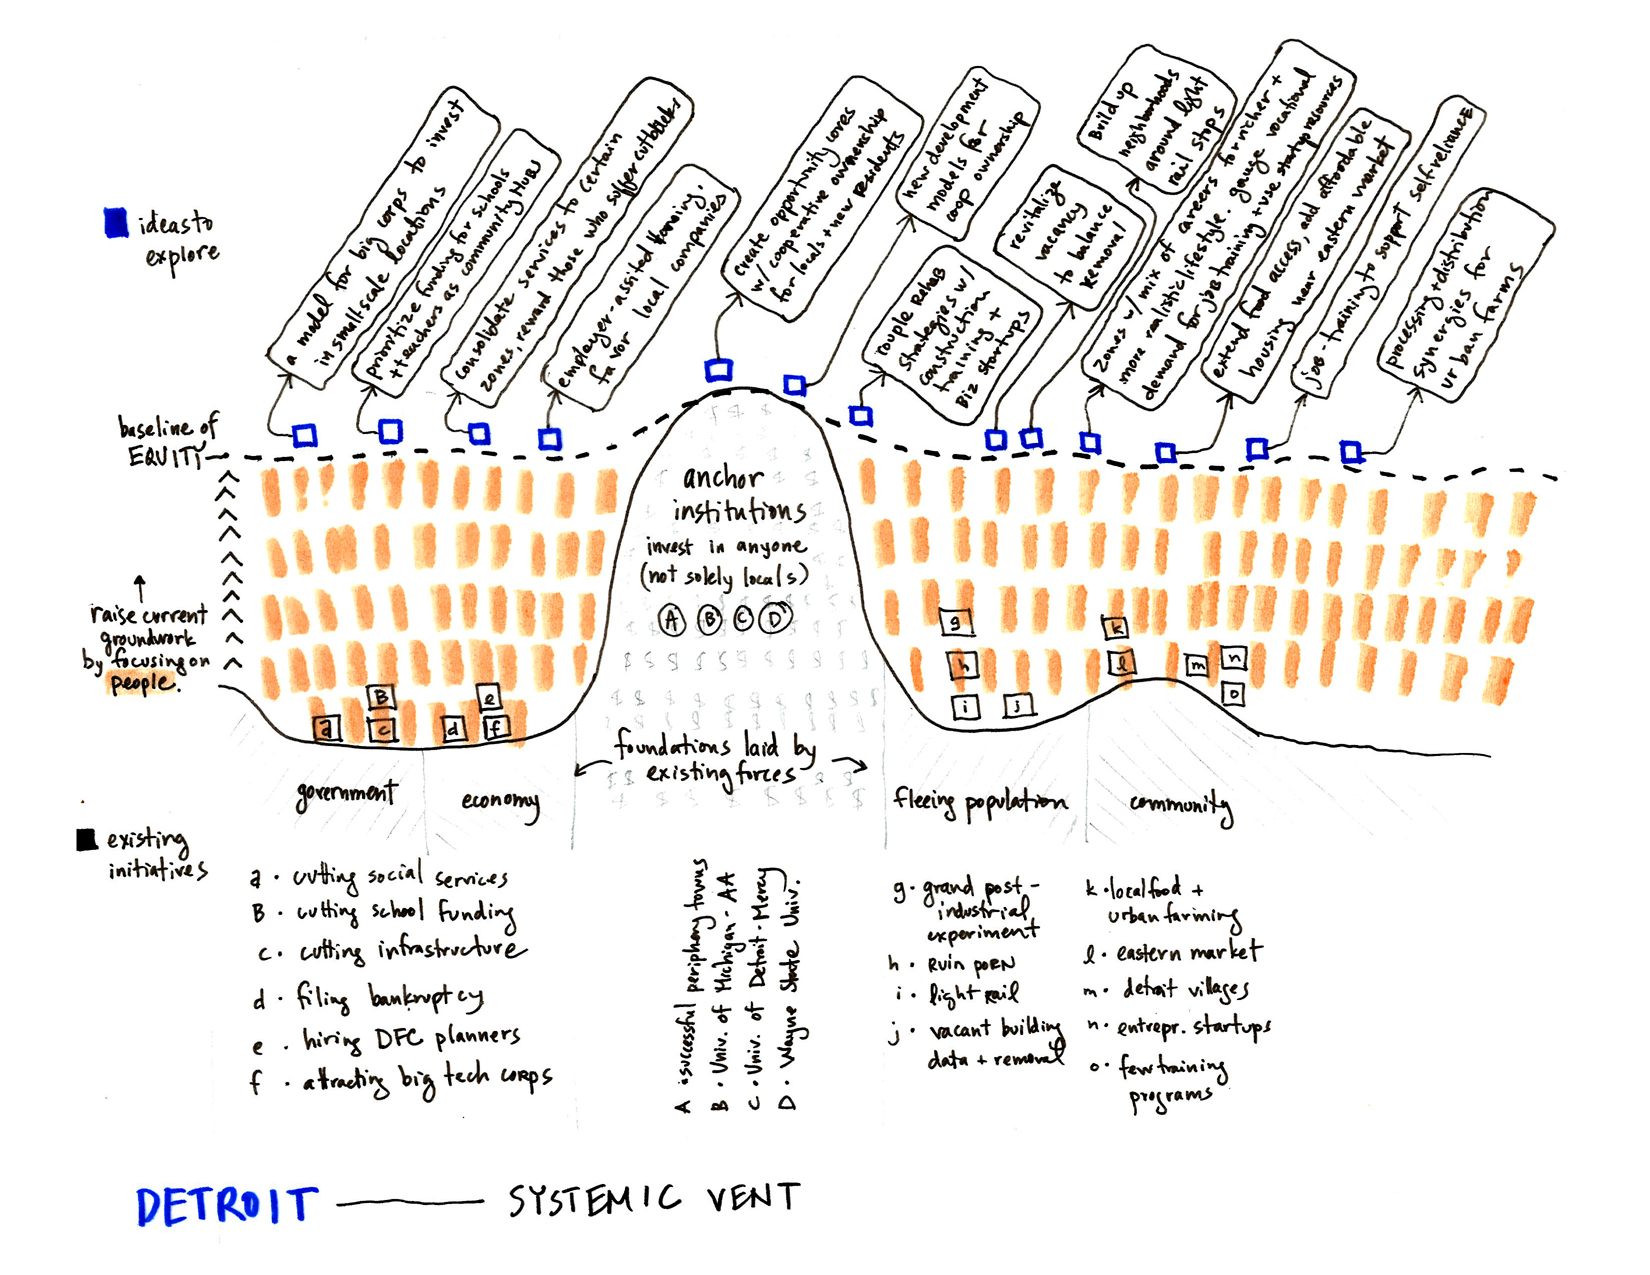 ideas to
explore
a model for big corps to invest
in small-scale locations
prioritize funding for schools
+ teachers as community HUBs
consolidate services to certain
zones, reward those who suffer cutbacks
employer-assisted housing,
favor local companies
create opportunity cores
w/ cooperative ownership
for locals + new residents
new development
models for
coop ownership
couple Rehab
strategies w/
construction
training +
Biz startups
revitalize
vacancy
to balance
removal
Build up
neighborhoods
around light
rail stops
zones w/ mix of careers for richer +
more realistic lifestyle. gauge vocational
demand for job training + use startup resources
extend food access, add affordable
housing near eastern market
job-training to support self-reliance
processing + distribution
synergies for
urban farms
baseline of
EQUITY
raise current
groundwork
by focusing on
people.
anchor
institutions
invest in anyone
(not solely locals)
A B C D
foundations laid by
existing forces
a B c d e f
g h i j k l m n o
government
economy
fleeing population
community
existing
initiatives
a · cutting social services
B · cutting school funding
c · cutting infrastructure
d · filing bankruptcy
e · hiring DFC planners
f · attracting big tech corps
A · successful periphery towns
B · Univ. of Michigan - AA
C · Univ. of Detroit - Mercy
D · Wayne State Univ.
g · grand post-
industrial
experiment
h · RUIN PORN
i · light rail
j · vacant building
data + removal
k · local food +
urban farming
l · eastern market
m · detroit villages
n · entrepr. startups
o · few training
programs
DETROIT — SYSTEMIC VENT